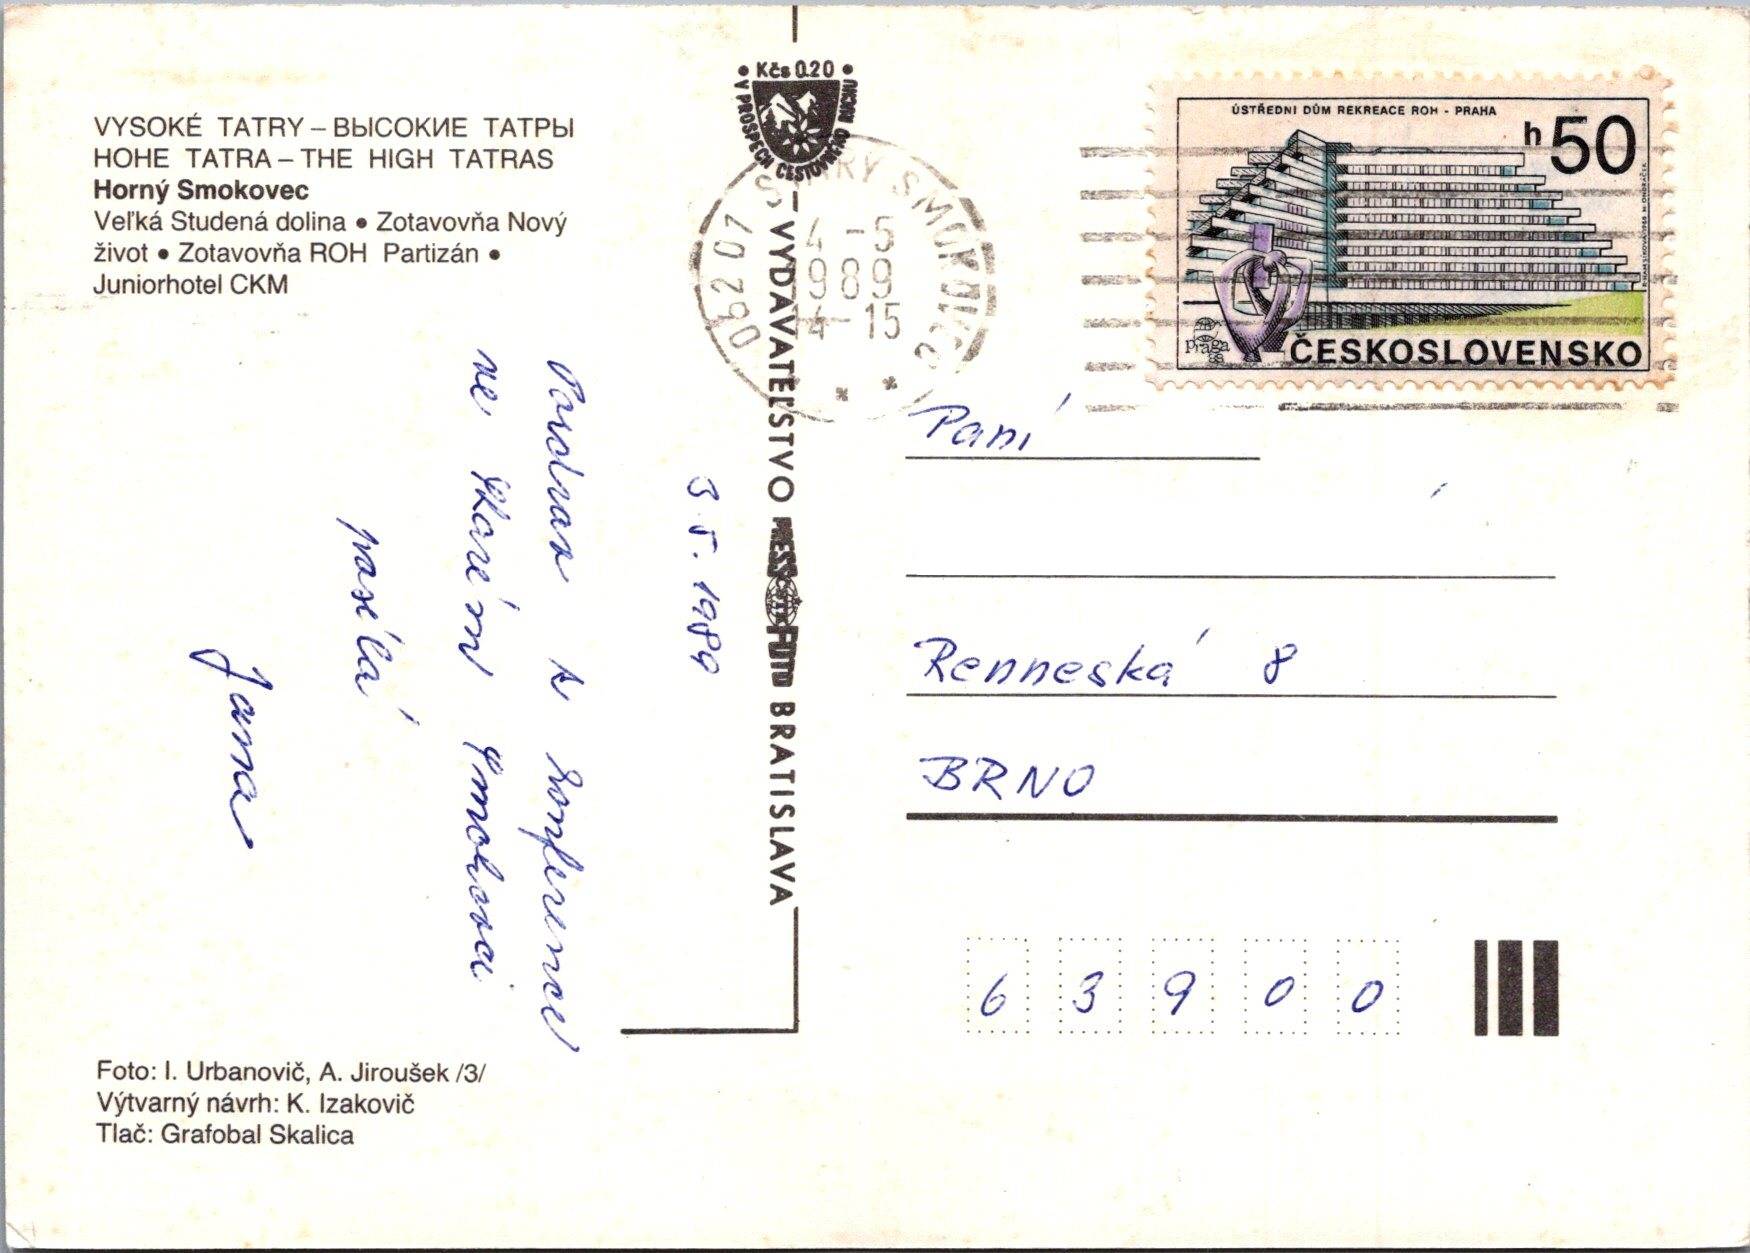 VYSOKÉ TATRY – ВЫСОКИЕ ТАТРЫ
HOHE TATRA – THE HIGH TATRAS
Horný Smokovec
Veľká Studená dolina • Zotavovňa Nový
život • Zotavovňa ROH Partizán •
Juniorhotel CKM
3. 5. 1989
Pozdrav z konference
ve Starém Smokovci
posílá
Jana
Foto: I. Urbanovič, A. Jiroušek /3/
Výtvarný návrh: K. Izakovič
Tlač: Grafobal Skalica
• Kčs 0.20 •
V PROSPECH CESTOVNÉHO RUCHU
VYDAVATEĽSTVO PRESSFOTO BRATISLAVA
ČSTK
STARÝ SMOKOVEC
062 07
4 -5
989
4-15
ÚSTŘEDNI DŮM REKREACE ROH - PRAHA
h 50
praga
88
ČESKOSLOVENSKO
Paní
Renneská 8
BRNO
6 3 9 0 0